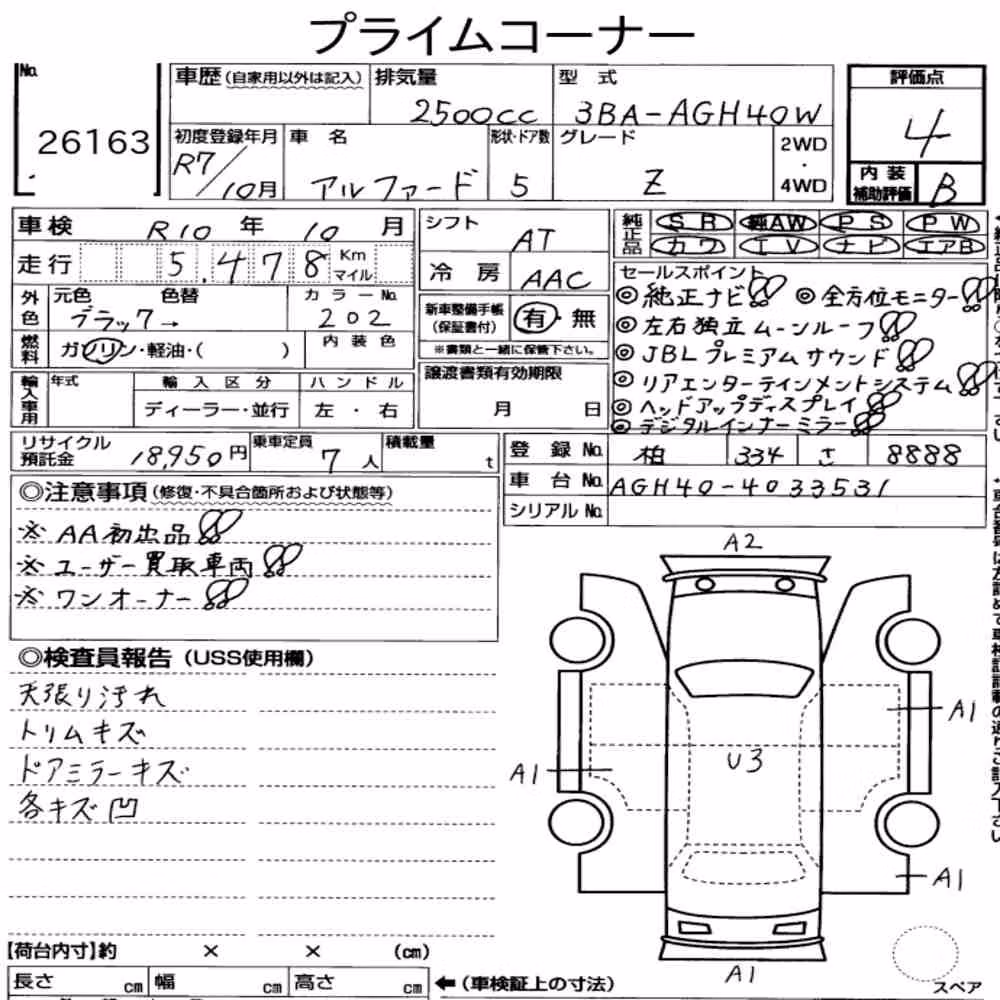 プライムコーナー
No.
26163
車歴(自家用以外は記入)
排気量
2500cc
型 式
3BA-AGH40W
評価点
4
初度登録年月
R7/10月
車 名
アルファード
形状・ドア数
5
グレード
Z
2WD
・
4WD
内装
補助評価
B
車検 R10 年 10 月
走行 5.478 Km
マイル
シフト
AT
冷房
AAC
純正品
SR 純AW PS PW
カワ TV ナビ エアB
外色
元色 色替
ブラック→
カラーNo.
202
新車整備手帳
(保証書付)
有・無
※書類と一緒に保管下さい。
燃料
ガソリン・軽油・( )
内装色
輸入車用
年式
輸入区分
ディーラー・並行
ハンドル
左・右
譲渡書類有効期限
月 日
セールスポイント
◎純正ナビ!! ◎全方位モニター!!
◎左右独立ムーンルーフ!!
◎JBLプレミアムサウンド!!
◎リアエンターテインメントシステム!!
◎ヘッドアップディスプレイ!!
◎デジタルインナーミラー!!
リサイクル
預託金
18,950円
乗車定員
7人
積載量
t
登録No. 柏 334 さ 8888
車台No. AGH40-4033531
シリアルNo.
◎注意事項(修復・不具合箇所および状態等)
※AA初出品!!
※ユーザー買取車両!!
※ワンオーナー!!
◎検査員報告(USS使用欄)
天張り汚れ
トリムキズ
ドアミラーキズ
各キズ凹
A2
A1
U3
A1
A1
A1
【荷台内寸】約 × × (cm)
長さ cm 幅 cm 高さ cm
←(車検証上の寸法)
スペア